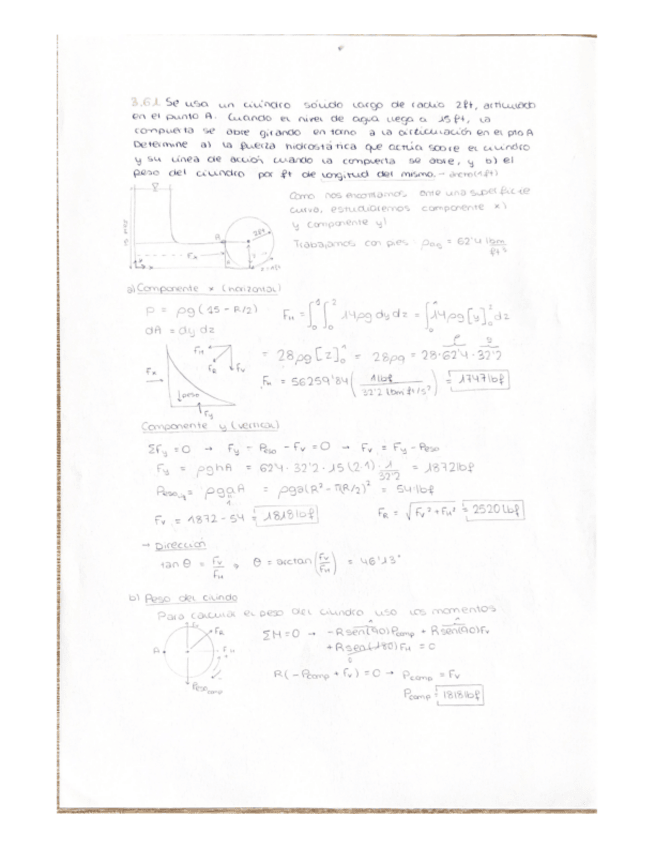 3.61 Se usa un cilindro sólido largo de radio 2ft, articulado
en el punto A. Cuando el nivel de agua llega a 15ft, la
compuerta se abre girando en torno a la articulación en el pto A
Determine a) la fuerza hidrostática que actúa sobre el cilindro
y su línea de acción cuando la compuerta se abre, y b) el
peso del cilindro por ft de longitud del mismo. -
Como nos encontramos ante una superficie
curva, estudiaremos componente x)
y componente y)
Trabajamos con pies ρ = 62'4 lbm/ft³
A
2ft
a) Componente x (horizontal)
p = ρg(15 - R/2)
dA = dy dz
F_H = ∫₀¹∫₀² 14ρg dy dz = ∫₀¹ 14ρg[y]₀² dz
= 28ρg[z]₀¹ = 28ρg = 28·62'4·32'2
F_H = 56259'84 (1lbf / 32'2 lbm ft/s²) = 1747 lbf
F_H
F_R
F_V
peso
F_y
Componente y (vertical)
ΣF_y = 0 → F_y - Peso - F_V = 0 → F_V = F_y - Peso
F_y = ρghA = 62'4·32'2·15(2·1)·1/32'2 = 1872lbf
= 54 lbf
F_V = 1872 - 54 = 1818lbf
F_R = √(F_V² + F_H²) = 2520 lbf
→ Dirección
tan θ = F_V/F_H → θ = arctan(F_V/F_H) = 46'13°
b) Peso del cilindo
Para calcular el peso del cilindro uso los momentos
A
F_R
F_H
Peso comp
ΣM=0 → -Rsen(90)Pcomp + Rsen(90)F_V
+Rsen(180)F_H = 0
R(-Pcomp + F_V) = 0 → Pcomp = F_V
Pcomp = 1818lbf